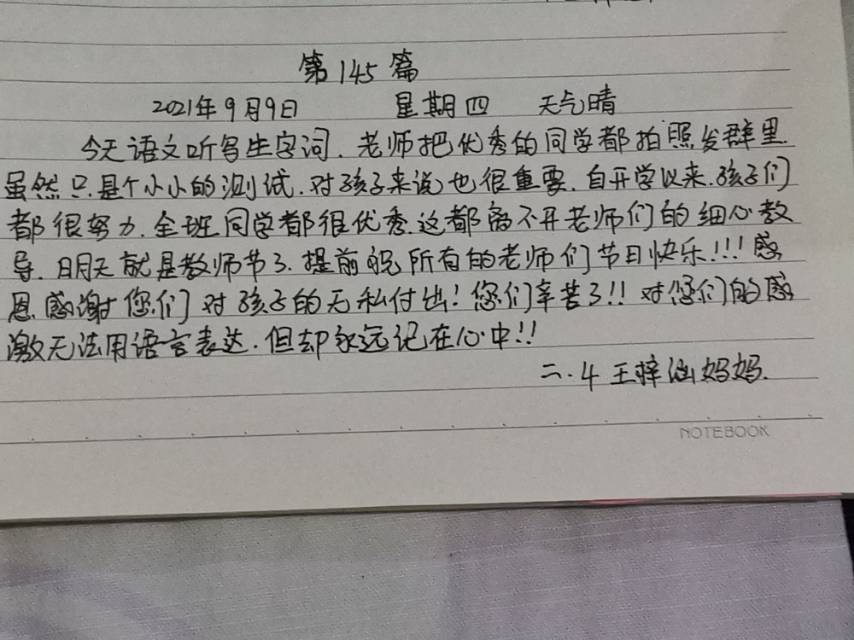 第145篇
2021年9月9日 星期四 天气晴
今天语文听写生字词.老师把优秀的同学都拍照发群里.
虽然只是个小小的测试.对孩子来说也很重要.自开学以来.孩子们
都很努力.全班同学都很优秀.这都离不开老师们的细心教
导.明天就是教师节了.提前祝所有的老师们节日快乐!!!感
恩感谢您们对孩子的无私付出!您们辛苦了!!对您们的感
激无法用语言表达.但却永远记在心中!!
二.4王梓涵妈妈.
NOTEBOOK